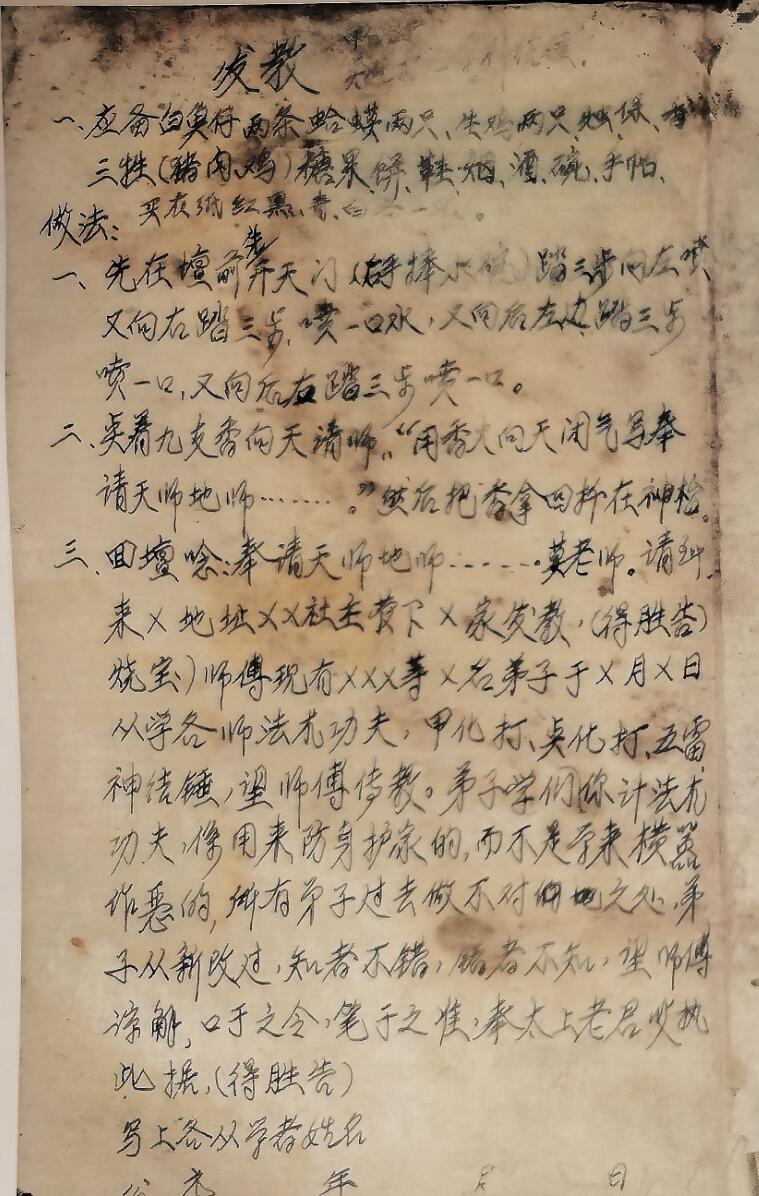 发教
一、应备白鱼仔两条蛤蟆两只、生鸡两只
三牲(猪肉、鸡)糖果饼、鞋、烟、酒、碗、手帕、
做法: 买衣纸红、黑、青、白
一、先在壇前先开天门(右手捧水碗)踏三步向左喷
又向右踏三步,喷一口水,又向后左边踏三步
喷一口,又向后右踏三步喷一口。
二、点着九支香向天请师,“用香火向天闭气写奉
请天师地师……。”然后把香拿回插在神枱。
三、回壇唸:奉请天师地师……莫老师。请到
来X地址XX社主管下X家发教,(得胜告)
烧宝)师傅现有XXX等X名弟子于X月X日
从学各师法尤功夫,甲化打、点化打、五雷
神结锤,望师傅传教。弟子学们你计法尤
功夫,像用来防身护家的,而不是学来横
作恶的,所有弟子过去做不对之处,弟
子从新改过,知者不错,错者不知,望师傅
凉解,口于之令,笔于之准,奉太上老君
此据,(得胜告)
写上各从学者姓名
年 月 日